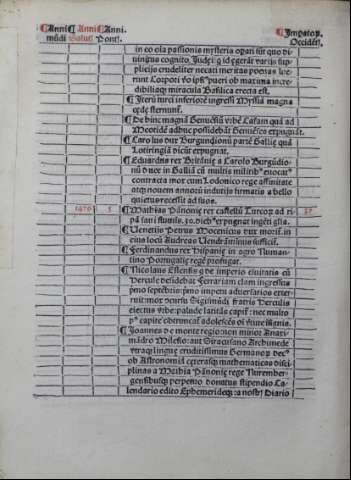 Anni Anni Anni. Impatoꝝ
mūdi Salut⁹ Pont². Occidēt².
in eo ola passionis mysteria opari sūt quo di-
uinit⁹ cognito, Judei q id egerāt varijs sup-
plicijs crudeliter necati meritas penas lue-
runt Corpori ꝟo ipi⁹ pueri ob maxima incre-
dibiliaqꝫ miracula Basilica erecta est.
¶ Iterū turci inferiorē ingressi Myssiā magna
cęde sternunt.
¶ De hinc magnā Genuēsiū vrbē Cafam quā ad
Meotidē adhuc possidebāt Genuēses expugnāt.
¶ Carolus dux Burgundionū partē Gallię quā
Lotiringiā dicūt expugnat.
¶ Eduardus rex Britānię a Carolo Burgūdio-
nū duce in Galliā cū multis milibꝰ euocat⁹
contracta mox cum Lodonico rege affinitate
atqꝫ nouem annoꝝ indutijs firmatis a bello
quietus recessit ad suos.
1476 5 ¶ Mathias Pānonię rex castellū Turcoꝝ ad ri- 37
pā saui fluuiū. 30. dieb⁹ expugnat ingēti glīa.
¶ Venetijs Petrus Mocenicus dux morif. in
eius locū Andreas Vendrāminus sufficit.
¶ Ferdinandus rex Hispanię in agro Numan-
tino Portugalię regē profligat.
¶ Nicolaus Estensis q̄ de imperio ciuitatis cū
Hercule desidebat Ferrariam clam ingressus
pmo septēbris: pmo impetu aduersarios exter-
ruit: mox aduentu Sigismūdi fratris Herculis
eiectus vrbe: palude latitās capit: nec multo
p⁹ capite obtruncat adolescēs oī siue insignis.
¶ Joannes de monte regio: non minor Anaxi-
mādro Milesio: aut Siracusano Archimede
vtraqꝫ lingua eruditissimus Germano: dū
ob Astronomiā ceterasqꝫ mathematicas disci-
plinas a Mathia Pānonię rege Nurember-
gensibusqꝫ perpetuo donatus stipendio Ca-
lendario edito Ephemeridęqꝫ: a nostris Diario